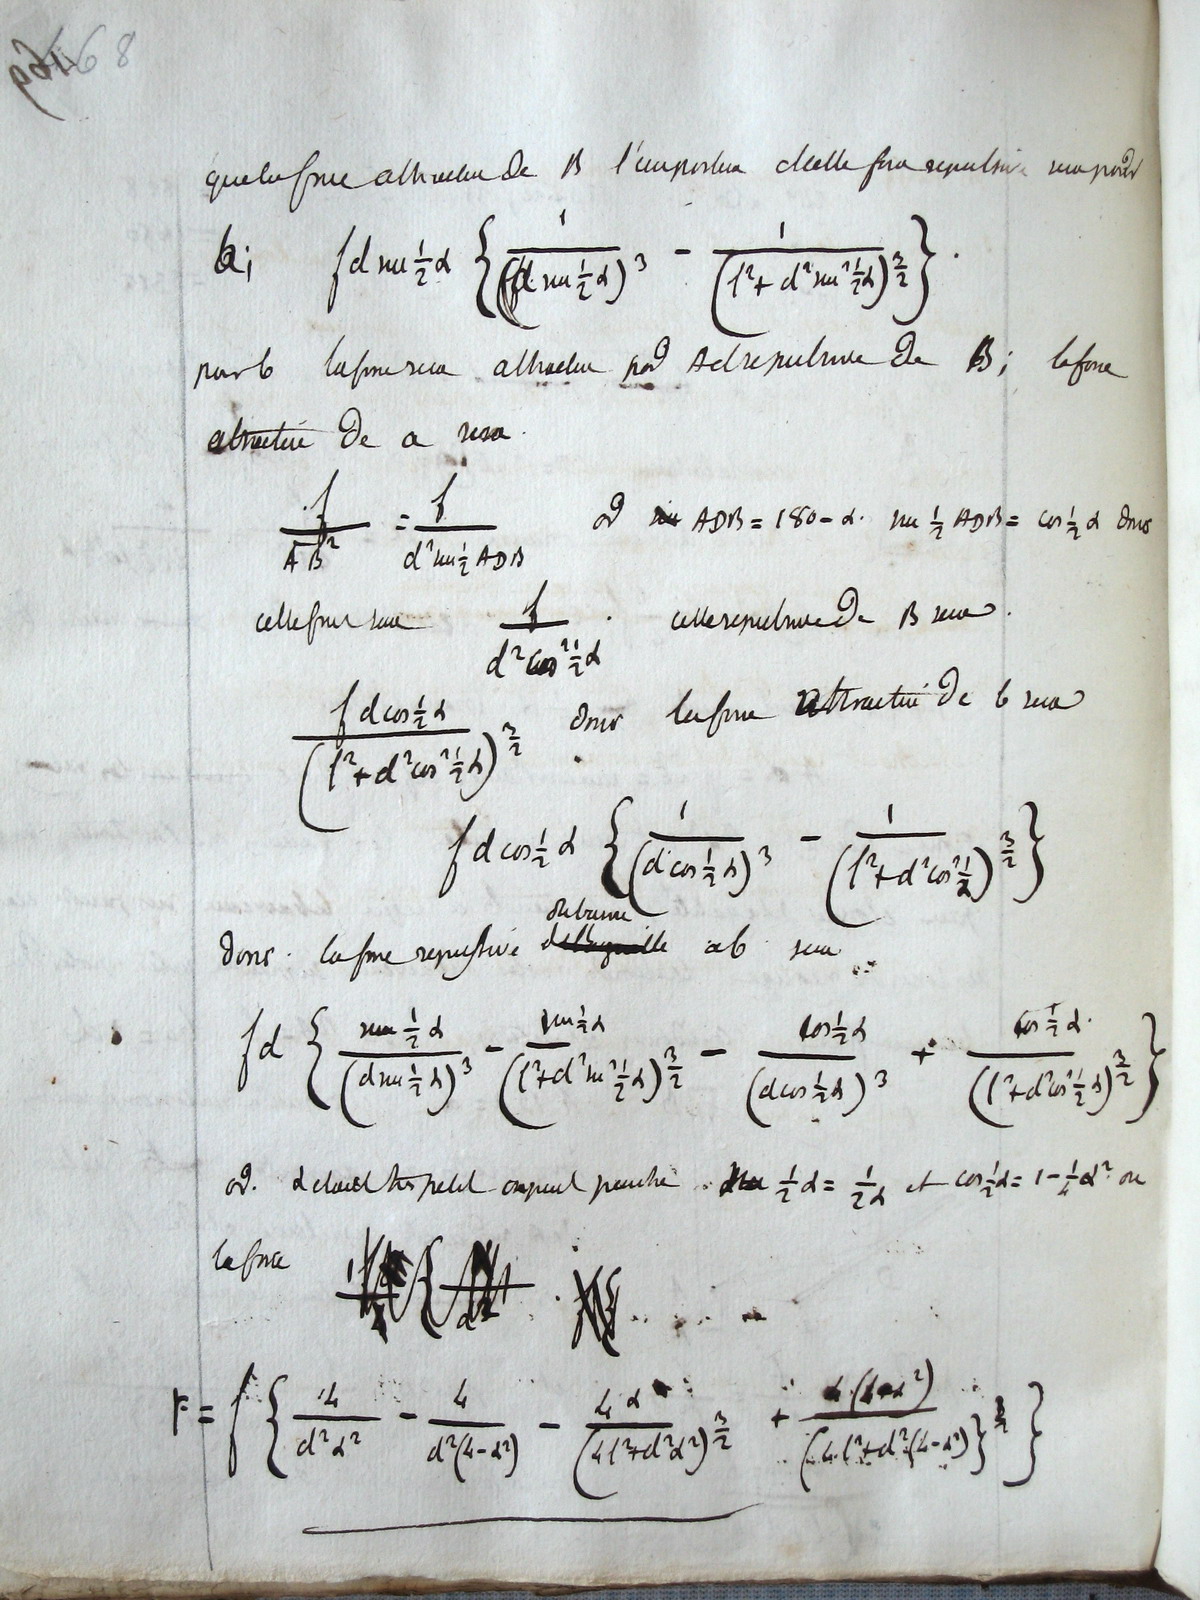 168
que la force attractive de B l'emportera cette force repulsive sera pour
a; f d sin ½ α { 1/(d sin ½ α)³ - 1/(l² + d² sin² ½ α)^{3/2} } .
pour b la force sera attractive par A et repulsive de B; la force
attractive de a sera
f/AB² = f/(d² sin ½ ADB) or ADB = 180 - α. sin ½ ADB = cos ½ α donc
cette force sera f/(d² cos² ½ α) . celle repulsive de B sera .
f d cos ½ α/(l² + d² cos² ½ α)^{3/2} . donc la force attractive de b sera
f d cos ½ α { 1/(d cos ½ α)³ - 1/(l² + d² cos² ½)^{3/2} }
donc la force repulsive ab sera
f d { sin ½ α/(d sin ½ α)³ - sin ½ α/(l² + d² sin² ½ α)^{3/2} - cos ½ α/(d cos ½ α)³ + cos ½ α/(l² + d² cos² ½ α)^{3/2} }
or. α etant tres petit on peut prendre sin ½ α = ½ α et cos ½ α = 1 - ¼ α² ou
la force
F = f { 4/(d² α²) - 4/(d² (4 - α²)) - 4 α/(4 l² + d² α²)^{3/2} + 4 (4 - α²)/(4 l² + d² (4 - α²)}^{3/2} }